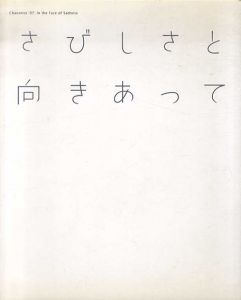 Chaosmos '97: In the Face of Sadness
さびしさと
向きあって